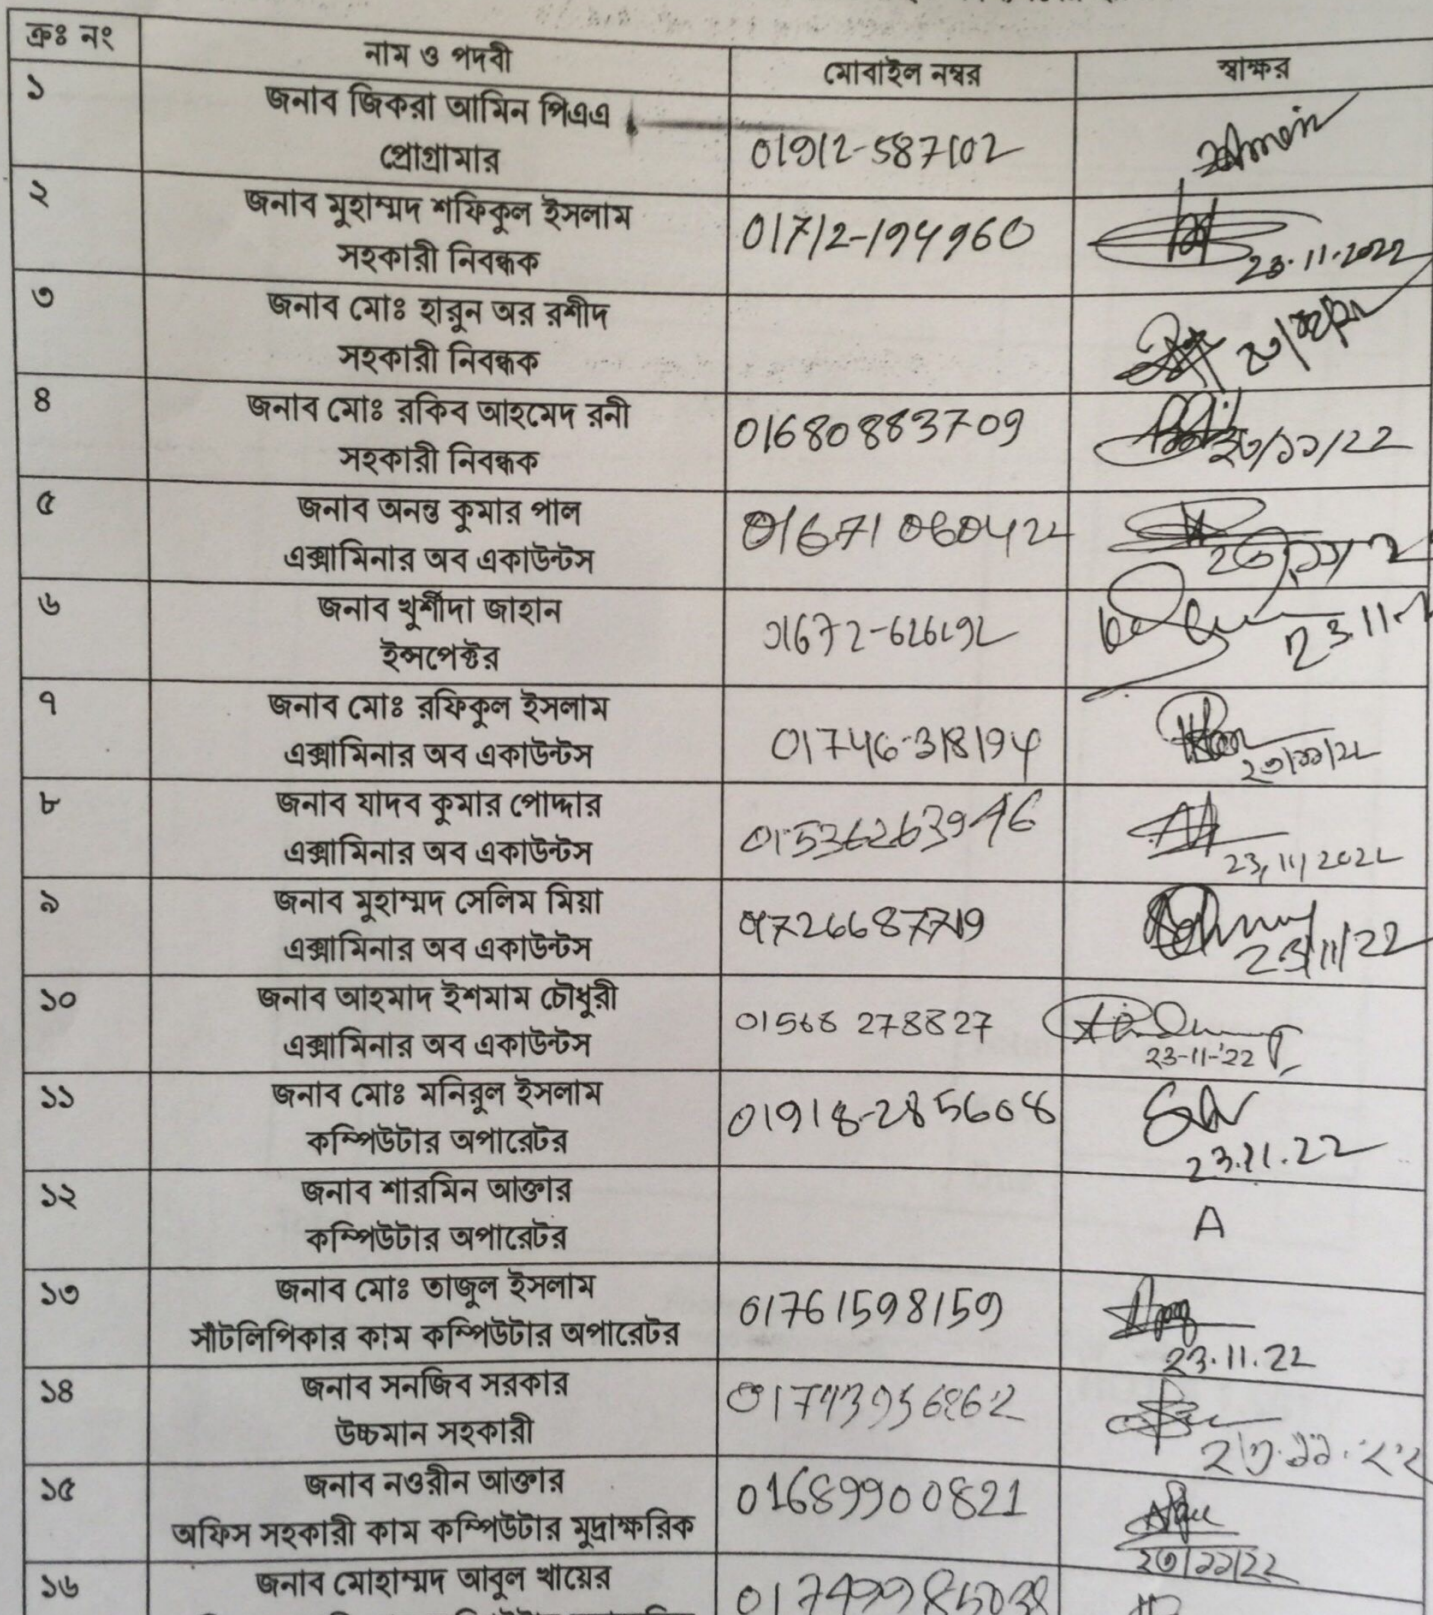 ক্রঃ নং নাম ও পদবী মোবাইল নম্বর স্বাক্ষর
১ জনাব জিকরা আমিন পিএএ
প্রোগ্রামার 01912-587102
২ জনাব মুহাম্মদ শফিকুল ইসলাম
সহকারী নিবন্ধক 01712-194960 23.11.2022
৩ জনাব মোঃ হারুন অর রশীদ
সহকারী নিবন্ধক
৪ জনাব মোঃ রকিব আহমেদ রনী
সহকারী নিবন্ধক 01680883709 ২৩/১১/22
৫ জনাব অনন্ত কুমার পাল
এক্সামিনার অব একাউন্টস 01671060422
৬ জনাব খুর্শীদা জাহান
ইন্সপেক্টর 01672-626192
৭ জনাব মোঃ রফিকুল ইসলাম
এক্সামিনার অব একাউন্টস 01746-318194 ২৩/১১/২২
৮ জনাব যাদব কুমার পোদ্দার
এক্সামিনার অব একাউন্টস 23/11/2022
৯ জনাব মুহাম্মদ সেলিম মিয়া
এক্সামিনার অব একাউন্টস 23/11/22
১০ জনাব আহমাদ ইশমাম চৌধুরী
এক্সামিনার অব একাউন্টস 01568 278827 23-11-'22
১১ জনাব মোঃ মনিরুল ইসলাম
কম্পিউটার অপারেটর 01918-285608 23.11.22
১২ জনাব শারমিন আক্তার
কম্পিউটার অপারেটর A
১৩ জনাব মোঃ তাজুল ইসলাম
সাঁটলিপিকার কাম কম্পিউটার অপারেটর 01761598159 23.11.22
১৪ জনাব সনজিব সরকার
উচ্চমান সহকারী ২৩.১১.২২
১৫ জনাব নওরীন আক্তার
অফিস সহকারী কাম কম্পিউটার মুদ্রাক্ষরিক 01689900821 ২৩/১১/২২
১৬ জনাব মোহাম্মদ আবুল খায়ের